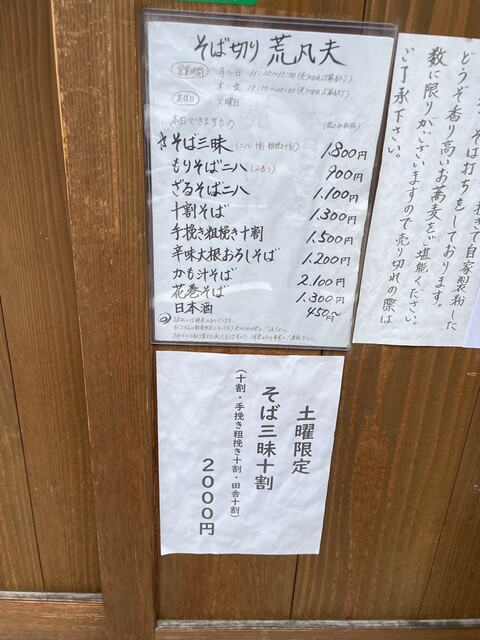 そば切り 荒凡夫
営業時間
月〜日 11:00〜15:00
定休日 火曜日
本日できますもの
そば三昧 1.800円
もりそば二八 900円
ざるそば二八 1.100円
十割そば 1.300円
手挽き粗挽き十割 1.500円
辛味大根おろしそば 1.200円
かも汁そば 2.100円
花巻そば 1.300円
日本酒 450〜円
挽きて自家製粉した
そば打ちをしております。
どうぞ香り高いお蕎麦をご堪能ください。
数に限りがございますので売り切れの際は
ご了承下さい。
土曜限定
そば三昧十割
(十割・手挽き粗挽き十割・田舎十割)
2000円